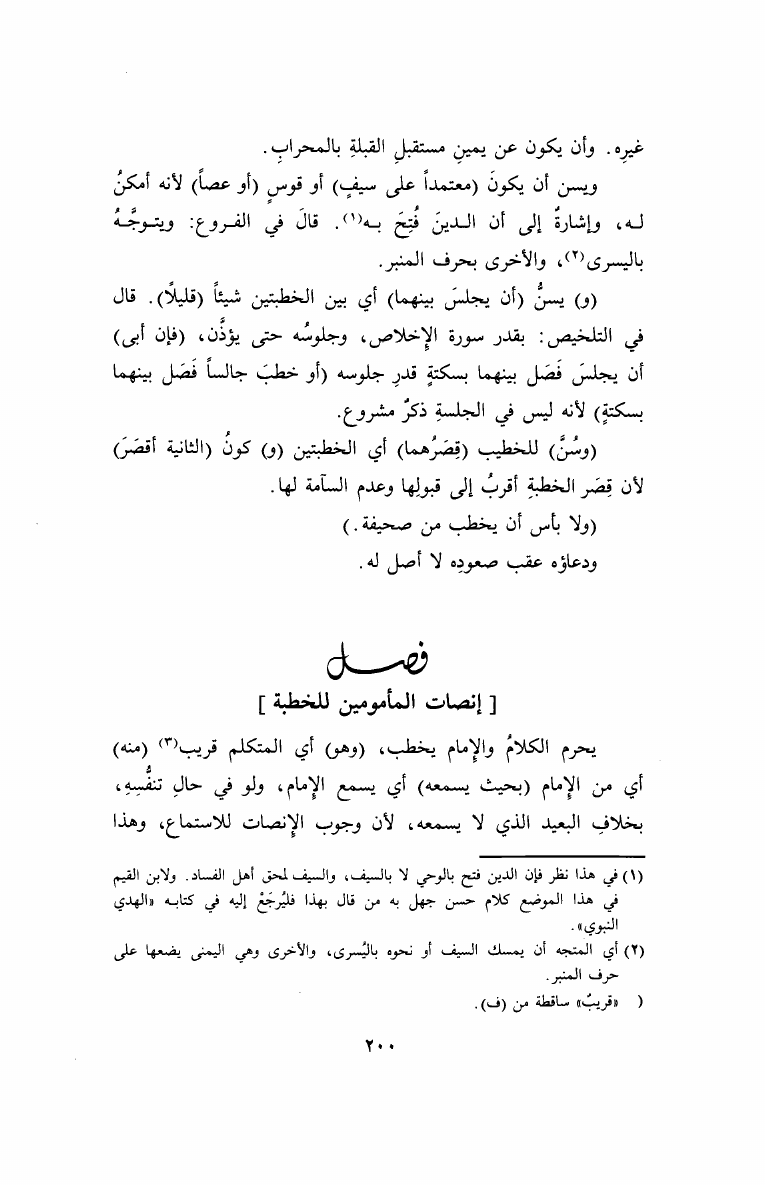 غيرِه. وأن يكون عن يمينِ مستقبلِ القبلةِ بالمحرابِ.
ويسن أن يكونَ (معتمداً على سيفٍ) أو قوسٍ (أو عصاً) لأنه أمكنُ
لـه، وإشارةٌ إلى أن الـدينَ فُتِحَ بـه(١). قالَ في الفـروع: ويتـوجَّـهُ
باليسرى(٢)، والأخرى بحرف المنبر.
(و) يسنُّ (أن يجلسَ بينهما) أي بين الخطبتين شيئاً (قليلًا). قال
في التلخيص: بقدر سورة الإِخلاص، وجلوسُه حتى يؤذَّن، (فإن أبى)
أن يجلسَ فَصَل بينهما بسكتةٍ قدرِ جلوسه (أو خطبَ جالساً فَصَل بينهما
بسكتةٍ) لأنه ليس في الجلسةِ ذكرٌ مشروع.
(وسُنَّ) للخطيب (قِصَرُهما) أي الخطبتين (و) كونُ (الثانية أقصَرَ)
لأن قِصَر الخطبةِ أقربُ إلى قبولِها وعدم السآمة لها.
(ولا بأس أن يخطب من صحيفة.)
ودعاؤه عقب صعودِه لا أصل له.
فصـل
[ إنصات المأمومين للخطبة ]
يحرم الكلامُ والإِمام يخطب، (وهو) أي المتكلم قريب(٣) (منه)
أي من الإمام (بحيث يسمعه) أي يسمع الإمام، ولو في حالِ تنفُّسِهِ،
بخلافِ البعيد الذي لا يسمعه، لأن وجوب الإنصات للاستماع، وهذا
(١) في هذا نظر فإن الدين فتح بالوحي لا بالسيف، والسيف لمحق أهل الفساد. ولابن القيم
في هذا الموضع كلام حسن جهل به من قال بهذا فليُرجَعْ إليه في كتابـه «الهدي
النبوي».
(٢) أي المتجه أن يمسك السيف أو نحوه باليُسرى، والأخرى وهي اليمنى يضعها على
حرف المنبر.
( ) «قريبٌ» ساقطة من (ف).
٢٠٠